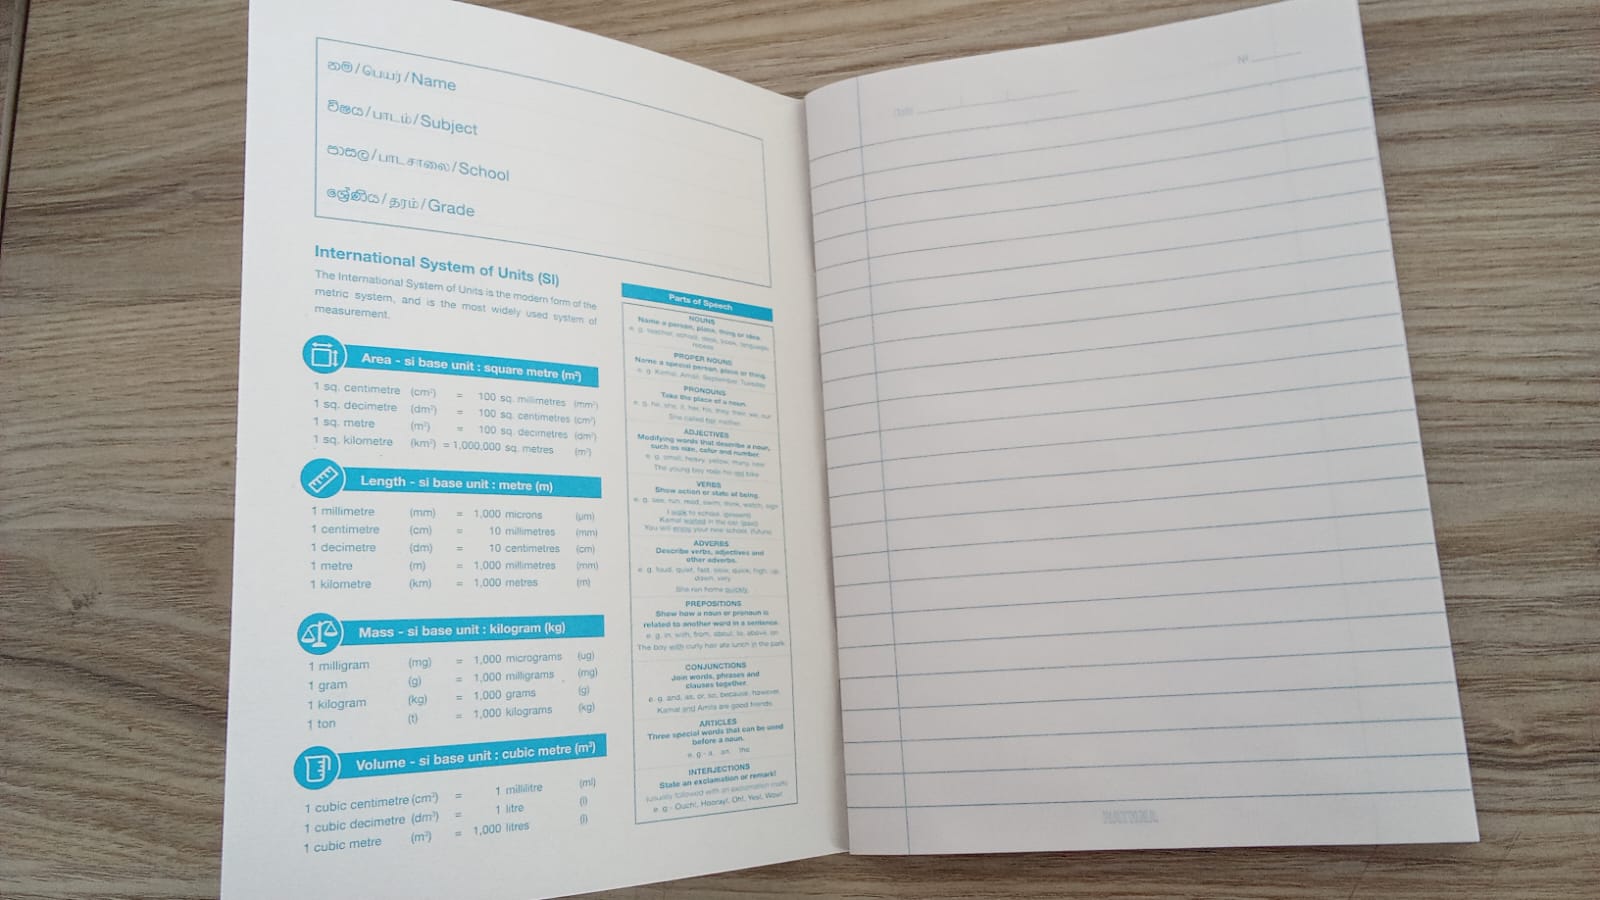 නම/பெயர்/Name
විෂය/பாடம்/Subject
පාසල/பாடசாலை/School
ශ්‍රේණිය/தரம்/Grade
International System of Units (SI)
The International System of Units is the modern form of the
metric system, and is the most widely used system of
measurement.
Area - si base unit : square metre (m²)
1 sq. centimetre (cm²) = 100 sq. millimetres (mm²)
1 sq. decimetre (dm²) = 100 sq. centimetres (cm²)
1 sq. metre (m²) = 100 sq. decimetres (dm²)
1 sq. kilometre (km²) = 1,000,000 sq. metres (m²)
Length - si base unit : metre (m)
1 millimetre (mm) = 1,000 microns (µm)
1 centimetre (cm) = 10 millimetres (mm)
1 decimetre (dm) = 10 centimetres (cm)
1 metre (m) = 1,000 millimetres (mm)
1 kilometre (km) = 1,000 metres (m)
Mass - si base unit : kilogram (kg)
1 milligram (mg) = 1,000 micrograms (ug)
1 gram (g) = 1,000 milligrams (mg)
1 kilogram (kg) = 1,000 grams (g)
1 ton (t) = 1,000 kilograms (kg)
Volume - si base unit : cubic metre (m³)
1 cubic centimetre (cm³) = 1 millilitre (ml)
1 cubic decimetre (dm³) = 1 litre (l)
1 cubic metre (m³) = 1,000 litres (l)
Parts of Speech
NOUNS
Name a person, place, thing or idea.
e. g. teacher, school, desk, book, language,
recess
PROPER NOUNS
Name a special person, place or thing.
e. g. Kamal, Amali, September, Tuesday
PRONOUNS
Take the place of a noun.
e. g. he, she, it, her, his, they, their, we, our
She called her mother.
ADJECTIVES
Modifying words that describe a noun,
such as size, color and number.
e. g. small, heavy, yellow, many, new
The young boy rode his old bike
VERBS
Show action or state of being.
e. g. see, run, read, swim, think, watch, sign
I walk to school. (present)
Kamal waited in the car. (past)
You will enjoy your new school. (future)
ADVERBS
Describe verbs, adjectives and
other adverbs.
e. g. loud, quiet, fast, slow, quick, high, up,
down, very
She ran home quickly.
PREPOSITIONS
Show how a noun or pronoun is
related to another word in a sentence.
e. g. in, with, from, about, to, above, on
The boy with curly hair ate lunch in the park.
CONJUNCTIONS
Join words, phrases and
clauses together.
e. g. and, as, or, so, because, however,
Kamal and Amila are good friends.
ARTICLES
Three special words that can be used
before a noun.
e. g.- a, an, the
INTERJECTIONS
State an exclamation or remark!
(usually followed with an exclamation mark)
e. g.- Ouch!, Hooray!, Oh!, Yes!, Wow!